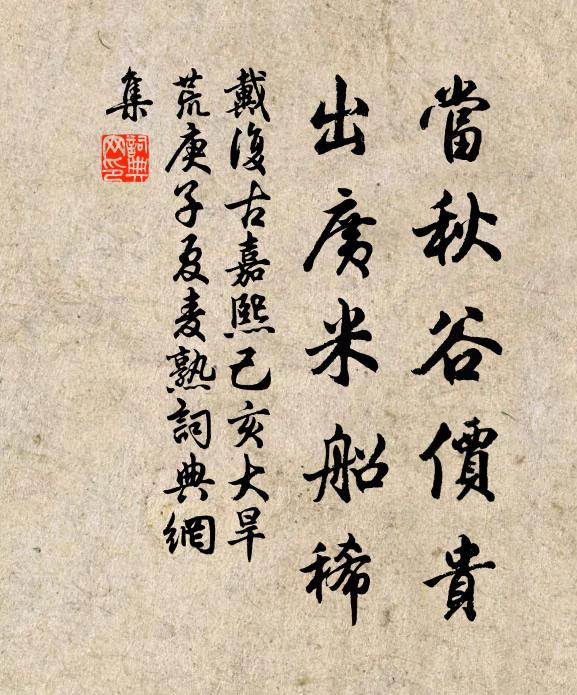 當秋谷價貴
出廣米船稀
戴復古嘉熙己亥大旱
荒庚子夏麦熟詞典網
集
詞典
网印